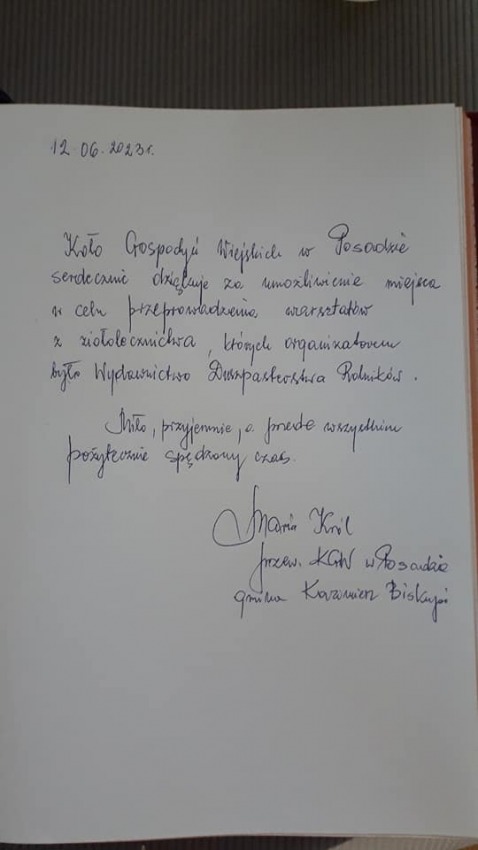 12.06.2023r.
Koło Gospodyń Wiejskich w Posadzie
serdecznie dziękuje za umożliwienie miejsca
w celu przeprowadzenia warsztatów
z ziołolecznictwa, których organizatorem
było Wydawnictwo Duszpasterstwa Rolników.
Miło, przyjemnie, a przede wszystkim
pożytecznie spędzony czas.
Maria Król
przew. KGW w Posadzie
gmina Kazimierz Biskupi